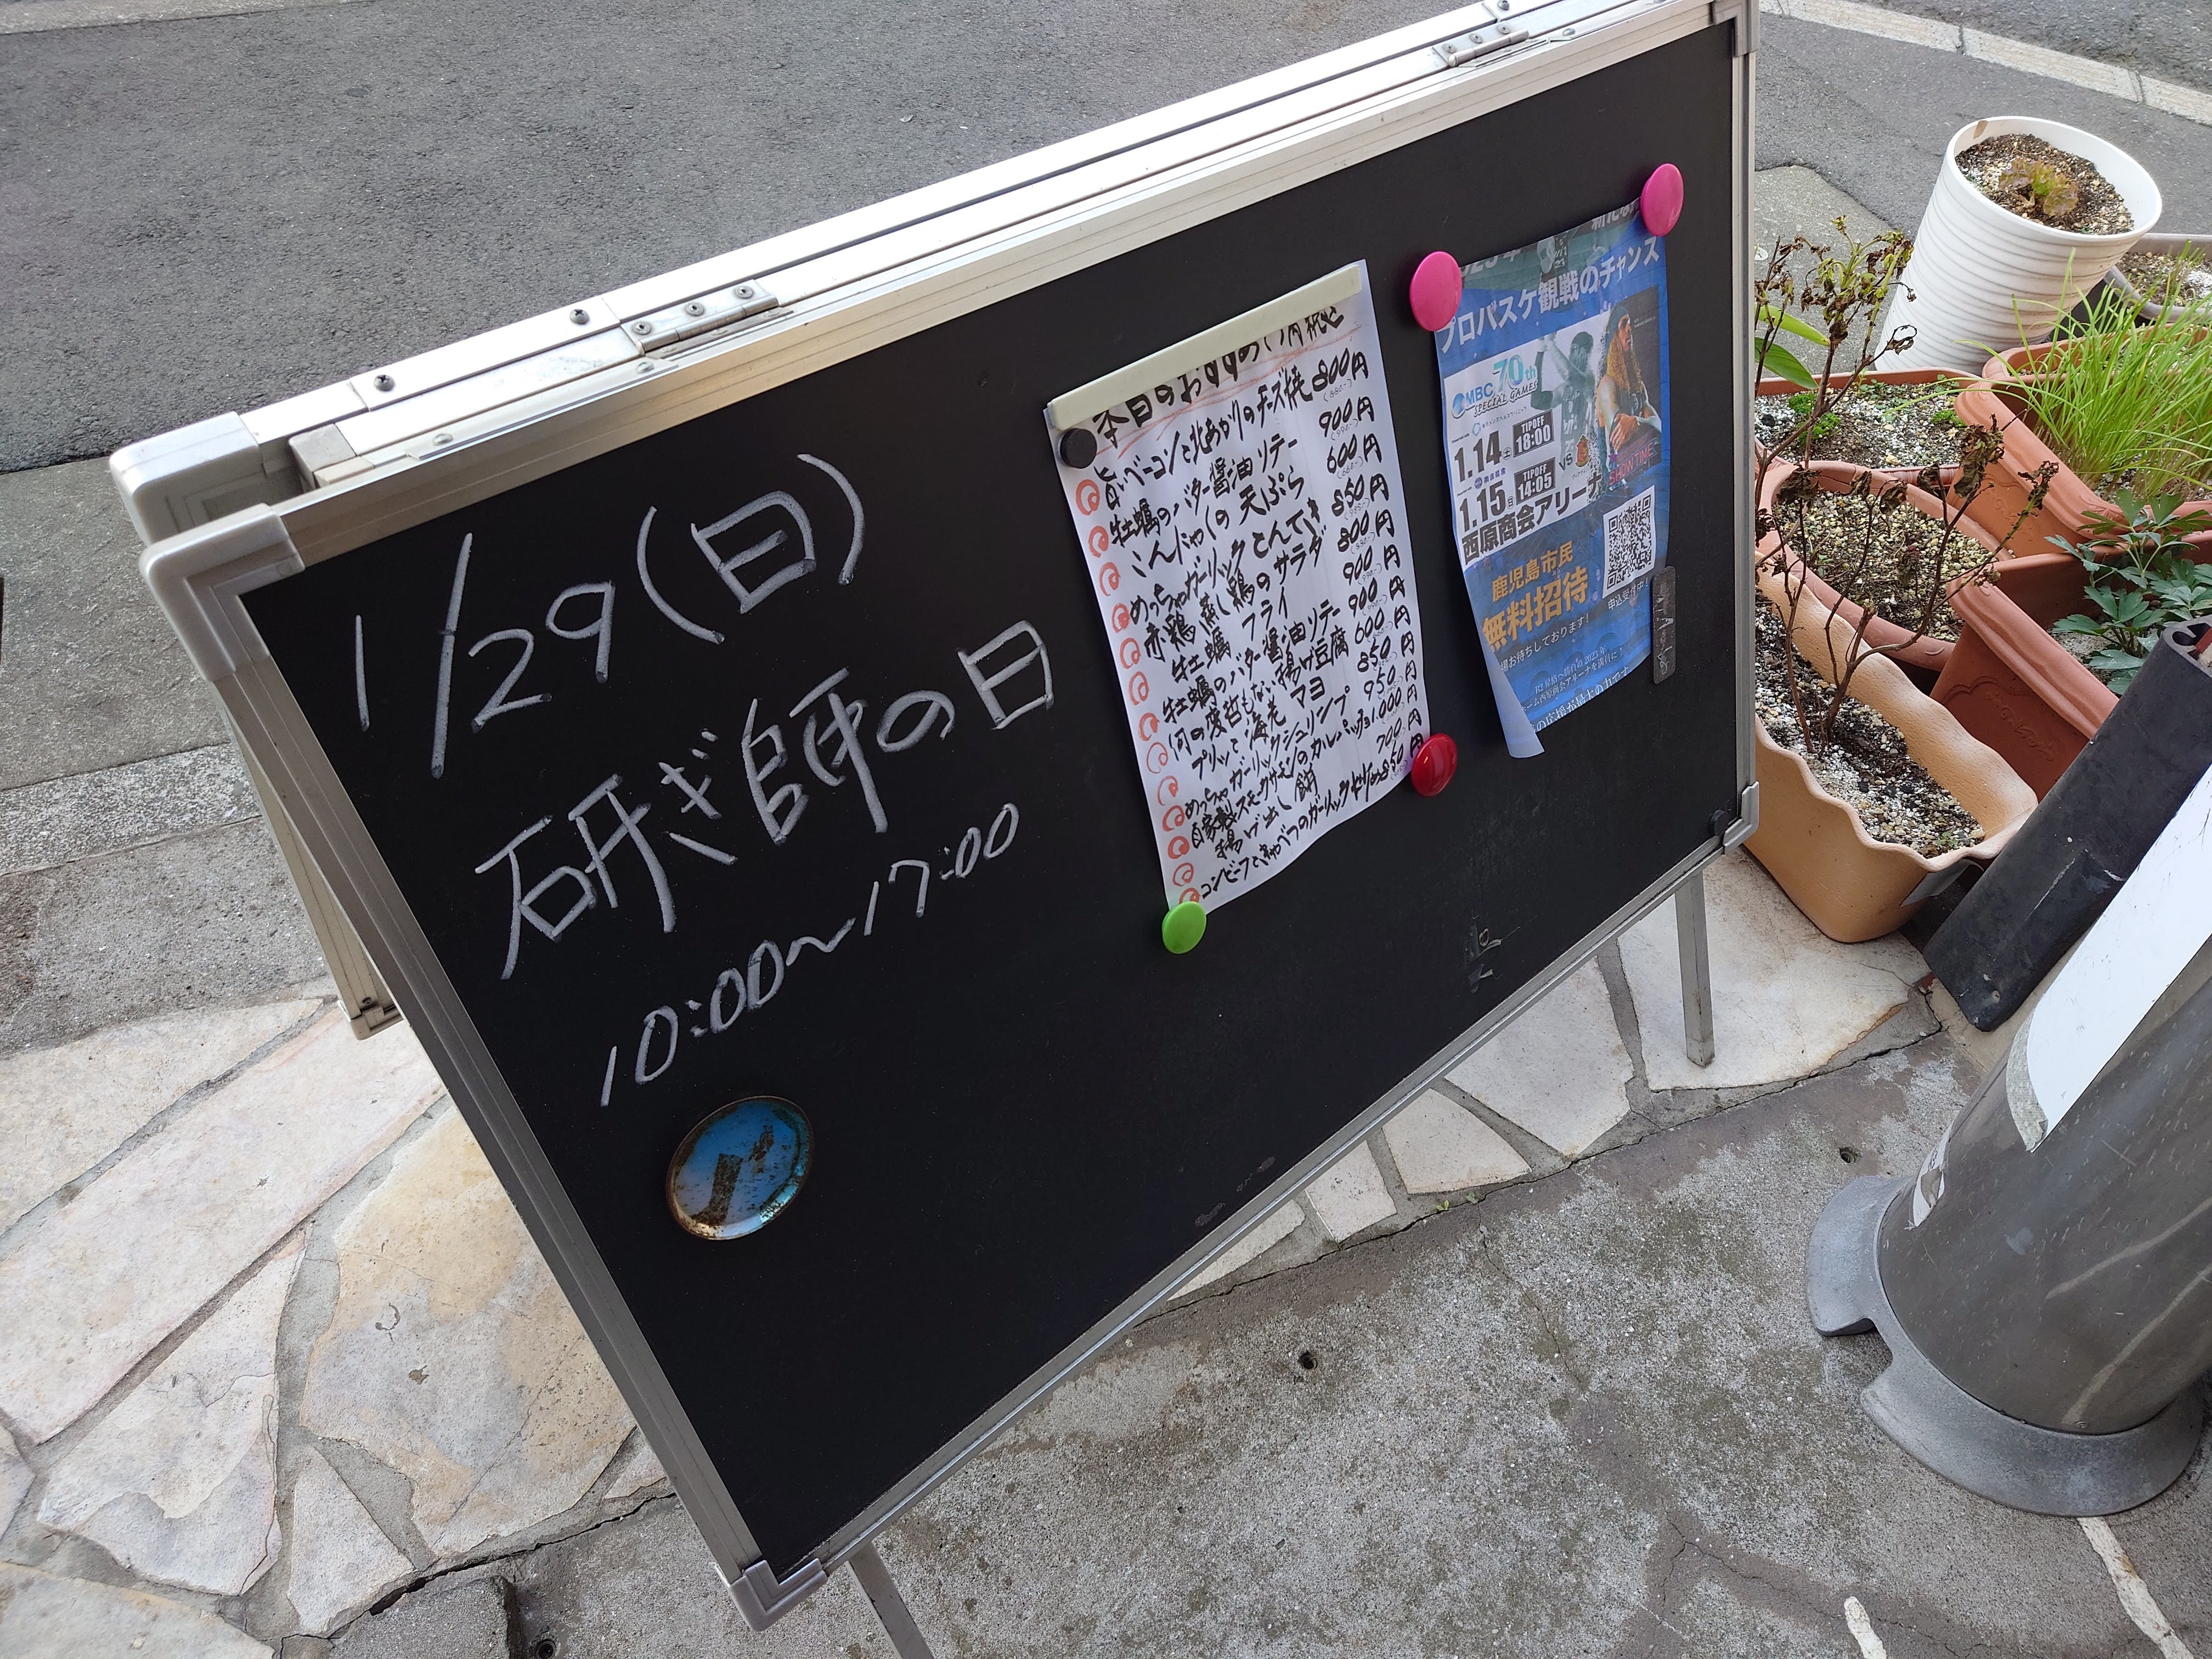 1/29(日)
研ぎ師の日
10:00〜17:00
本日のおすすめ
旨いベーコンと北あかりのチーズ焼 800円
牡蠣のバター醤油ソテー 900円
こんにゃくの天ぷら 600円
めっちゃガーリックとんてき 850円
赤鶏蒸し鶏のサラダ 800円
牡蠣フライ 900円
牡蠣のバター醤油ソテー 900円
何の変哲もない揚げ豆腐 600円
プリッで海老マヨ 850円
めっちゃガーリックシュリンプ 950円
自家製スモークサーモンのカルパッチョ 1,000円
揚げ出し餅 700円
コンビーフとキャベツのガーリック炒め 850円
プロバスケ観戦のチャンス
MBC 70th
SPECIAL GAMES
1.14 土 TIPOFF 18:00
VS
1.15 日 TIPOFF 14:05
SHOW TIME
西原商会アリーナ
鹿児島市民
無料招待
申込受付中!
お待ちしております!